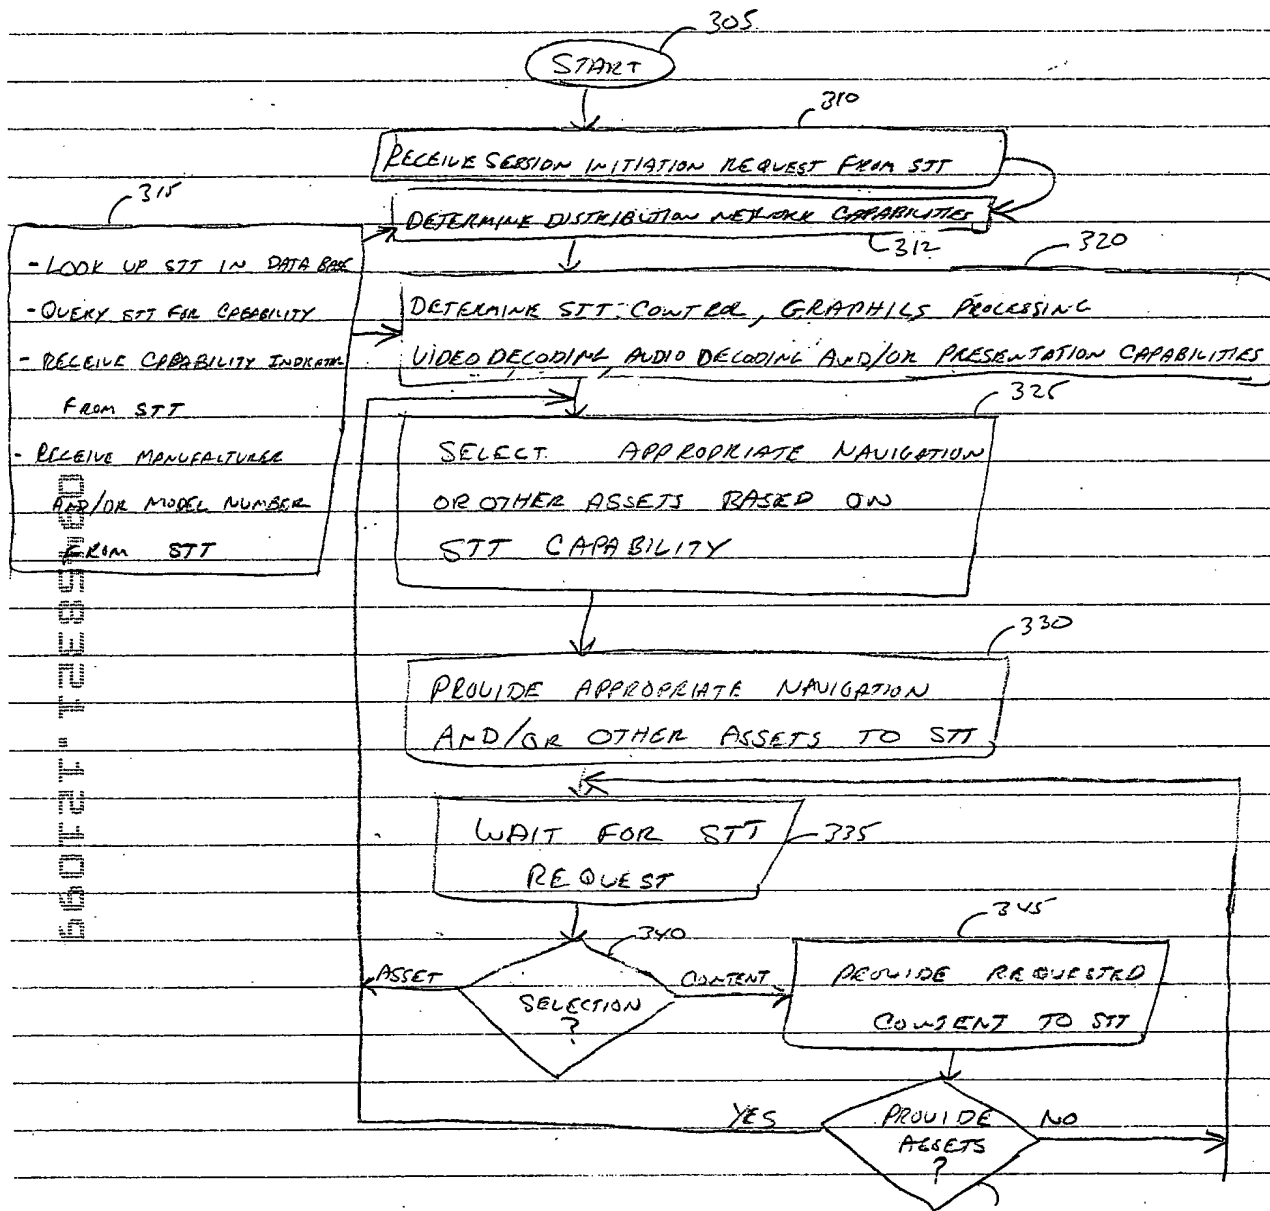 305
START
310
RECEIVE SESSION INITIATION REQUEST FROM STT
315
DETERMINE DISTRIBUTION NETWORK CAPABILITIES
312
320
- LOOK UP STT IN DATA BASE
- QUERY STT FOR CAPABILITY
- RECEIVE CAPABILITY INDICATOR
FROM STT
- RECEIVE MANUFACTURER
AND/OR MODEL NUMBER
FROM STT
DETERMINE STT CONTROL, GRAPHICS PROCESSING
VIDEO DECODING, AUDIO DECODING AND/OR PRESENTATION CAPABILITIES
325
SELECT APPROPRIATE NAVIGATION
OR OTHER ASSETS BASED ON
STT CAPABILITY
330
PROVIDE APPROPRIATE NAVIGATION
AND/OR OTHER ASSETS TO STT
WAIT FOR STT
REQUEST
335
340
SELECTION
?
ASSET
CONTENT
345
PROVIDE REQUESTED
CONTENT TO STT
PROVIDE
ASSETS
?
YES
NO